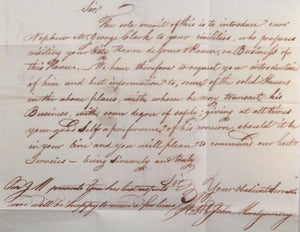 Sir
The sole merit of this is to introduce our
Nephew Mr George Clark to your civilities, who proposes
visiting your City Havre de Grace & Rouen, on Business of
this House. We have therefore to request your introduction
of him and best information to, some of the solid Houses
in the above places, with whom he may transact his
Business, with some degree of safety; giving at all times
your good Self a preference of his concerns, should it be
in your line and you will please to command our best
Services - being sincerely and truly
Sir
Your obedient Servants
presents you his best respects
will be happy to
John Montgomery